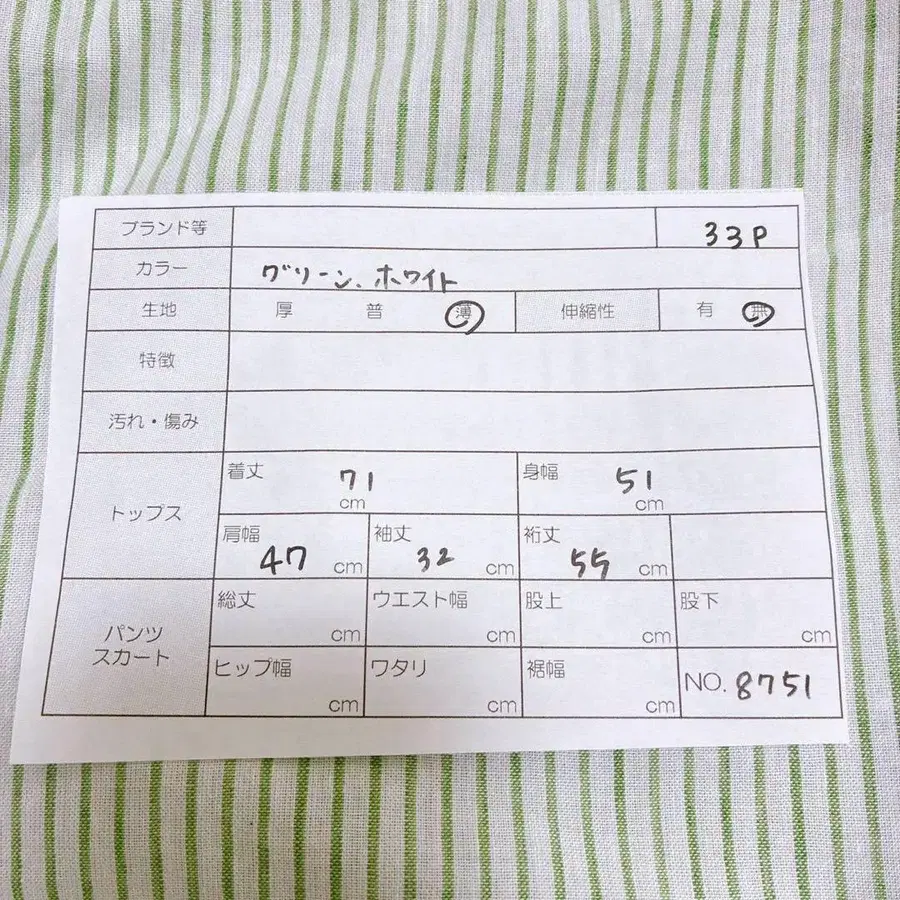 ブランド等 33P
カラー グリーン、ホワイト
生地 厚 普 薄 伸縮性 有 無
特徴
汚れ・傷み
トップス
着丈 71 cm 身幅 51 cm
肩幅 47 cm 袖丈 32 cm 裄丈 55 cm
パンツ
スカート
総丈 cm ウエスト幅 cm 股上 cm 股下 cm
ヒップ幅 cm ワタリ cm 裾幅 cm NO. 8751